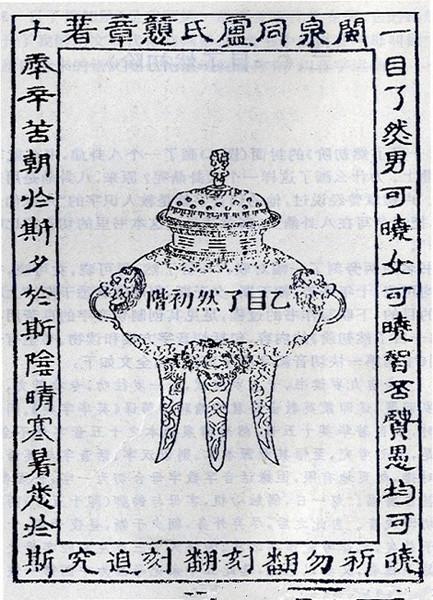 閩泉同盧氏戇章著
一目了然男可曉女可曉智否賢愚均可曉
乙目了然初階
十辛苦朝於斯夕於斯陰晴寒暑悉於斯
祈勿翻刻翻刻追究